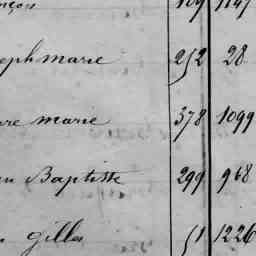 nçois 109 1147
seph marie 252 28
rre marie 378 1099
an Baptiste 299 968
gilles 51 1226